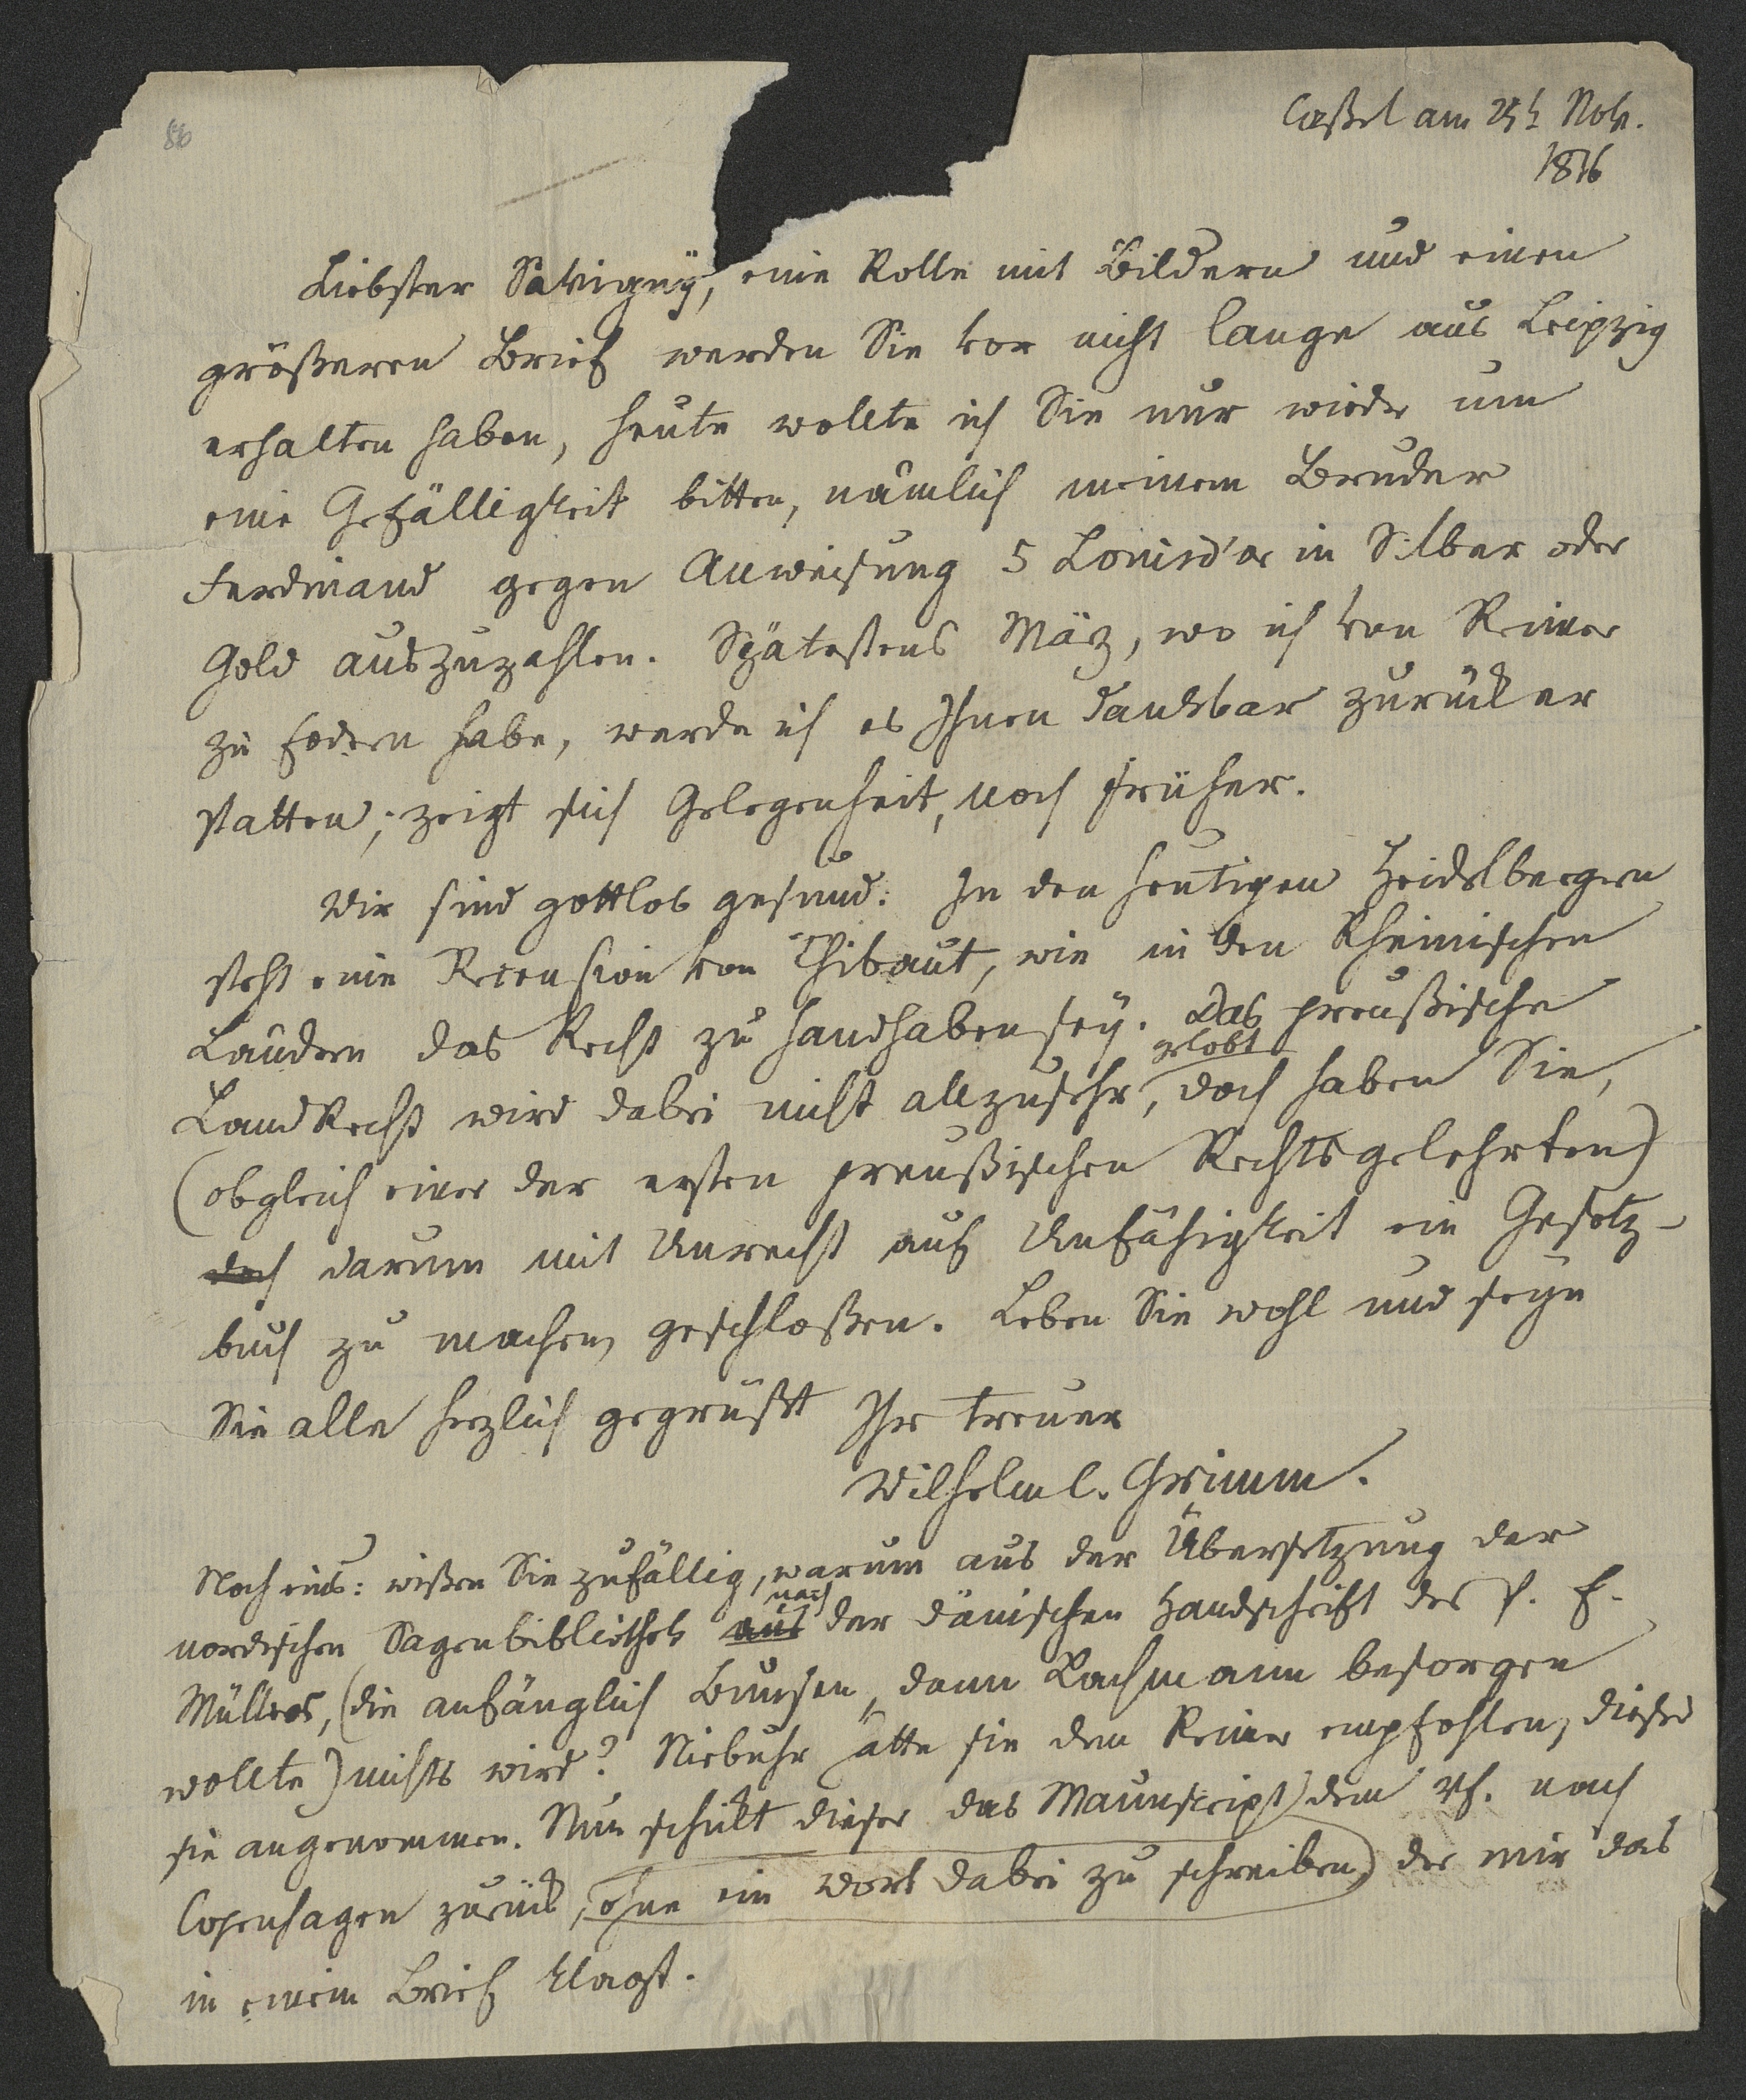 86
Caßel am 25t Nov.
1816
Liebster Savigny, eine Rolle mit Bildern und einen
größeren Brief werden Sie vor nicht lange aus Leipzig
erhalten haben, heute wollte ich Sie nur wieder um
eine Gefälligkeit bitten, nämlich meinem Bruder
Ferdinand gegen Anweisung 5 Louisd'or in Silber oder
Gold auszuzahlen. Spätestens März, wo ich von Reimer
zu fodern habe, werde ich es Ihnen dankbar zurück er
statten; zeigt sich Gelegenheit, noch früher.
Wir sind gottlob gesund: In den heutigen Heidelbergern
steht eine Recension von Thibaut, wie in den Rheinischen
Ländern das Recht zu handhaben sey. Das preußische
gelobt
LandRecht wird dabei nicht allzusehr, doch haben Sie,
(obgleich einer der ersten preußischen Rechtsgelehrten)
doch darum mit Unrecht auf Unfähigkeit ein Gesetz-
buch zu machen, geschloßen. Leben Sie wohl und seyn
Sie alle herzlich gegrüßt Ihr treuer
Wilhelm C. Grimm.
Noch eins: wißen Sie zufällig, warum aus der Übersetzung der
nach
nordischen Sagenbibliothek aus der dänischen Handschrift des P. E.
Müllers, (die anfänglich Bunsen, dann Lachmann besorgen
wollte) nichts wird? Niebuhr hatte sie dem Reimer empfohlen, dieser
sie angenommen. Nun schickt dieser das Manuscript dem Vf. nach
Copenhagen zurück, (ohne ein Wort dabei zu schreiben) der mir das
in einem Brief klagt.